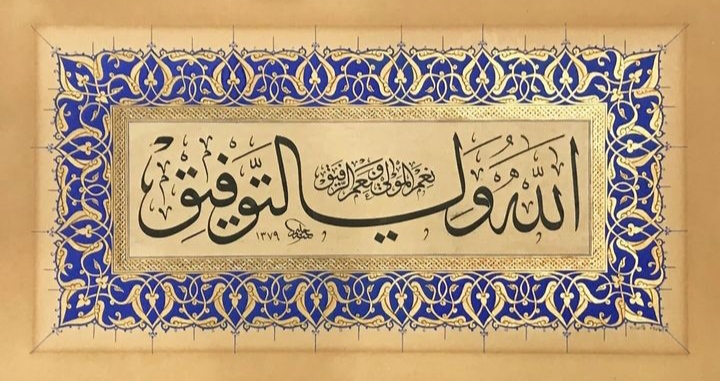 الله ولي التوفيق
نعم المولى ونعم الرفيق
حامد ١٣٧٩